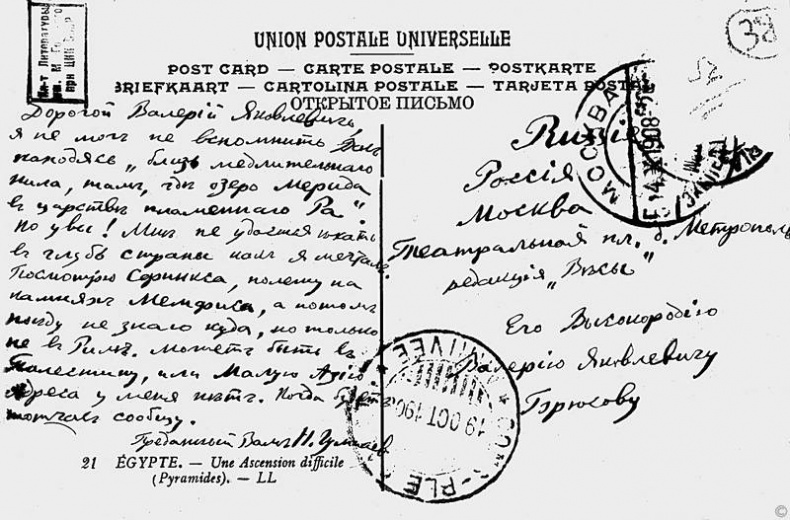 Ин-т Литературы
им. М. Г
при ЦИК СССР
38
UNION POSTALE UNIVERSELLE
POST CARD — CARTE POSTALE — POSTKARTE
BRIEFKAART — CARTOLINA POSTALE — TARJETA POSTAL
ОТКРЫТОЕ ПИСЬМО
Дорогой Валерій Яковлевичъ,
я не могъ не вспомнить Васъ
находясь „близь медлительнаго
Нила, тамъ, гдѣ озеро Мерида
въ царствѣ пламеннаго Ра“.
Но увы! Мнѣ не удается ѣхать
въ глубь страны какъ я мечталъ.
Посмотрю Сфинкса, полежу на
камняхъ Мемфиса, а потомъ
поѣду не знаю куда, но только
не въ Римъ. Можетъ быть въ
Палестину, или Малую Азію.
Адреса у меня нѣтъ. Когда будетъ
тотчасъ сообщу.
Преданный Вамъ Н. Гумилев
Russie
Россія
Москва
Театральная пл. д. Метрополь
редакція „Вѣсы“
Его Высокородію
Валерію Яковлевичу
Брюсову
МОСКВА
1908
ARRIVÉE
19 OCT 190
21 ÉGYPTE. — Une Ascension difficile
(Pyramides). — LL
©